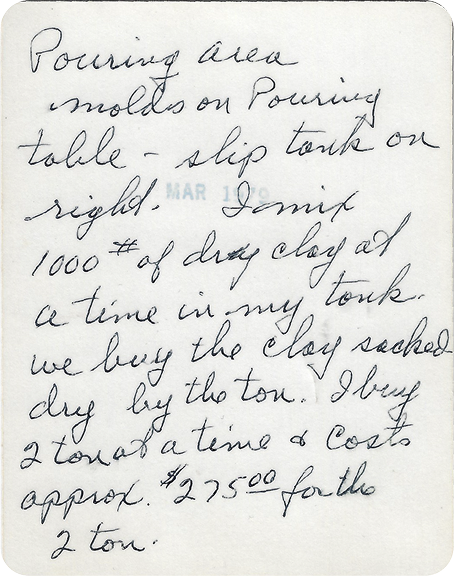 Pouring area
molds on Pouring
table - slip tank on
right.
MAR 1979
I mix
1000 # of dry clay at
a time in my tank.
we buy the clay sacked
dry by the ton. I buy
2 ton at a time & costs
approx. $275.00 for the
2 ton.